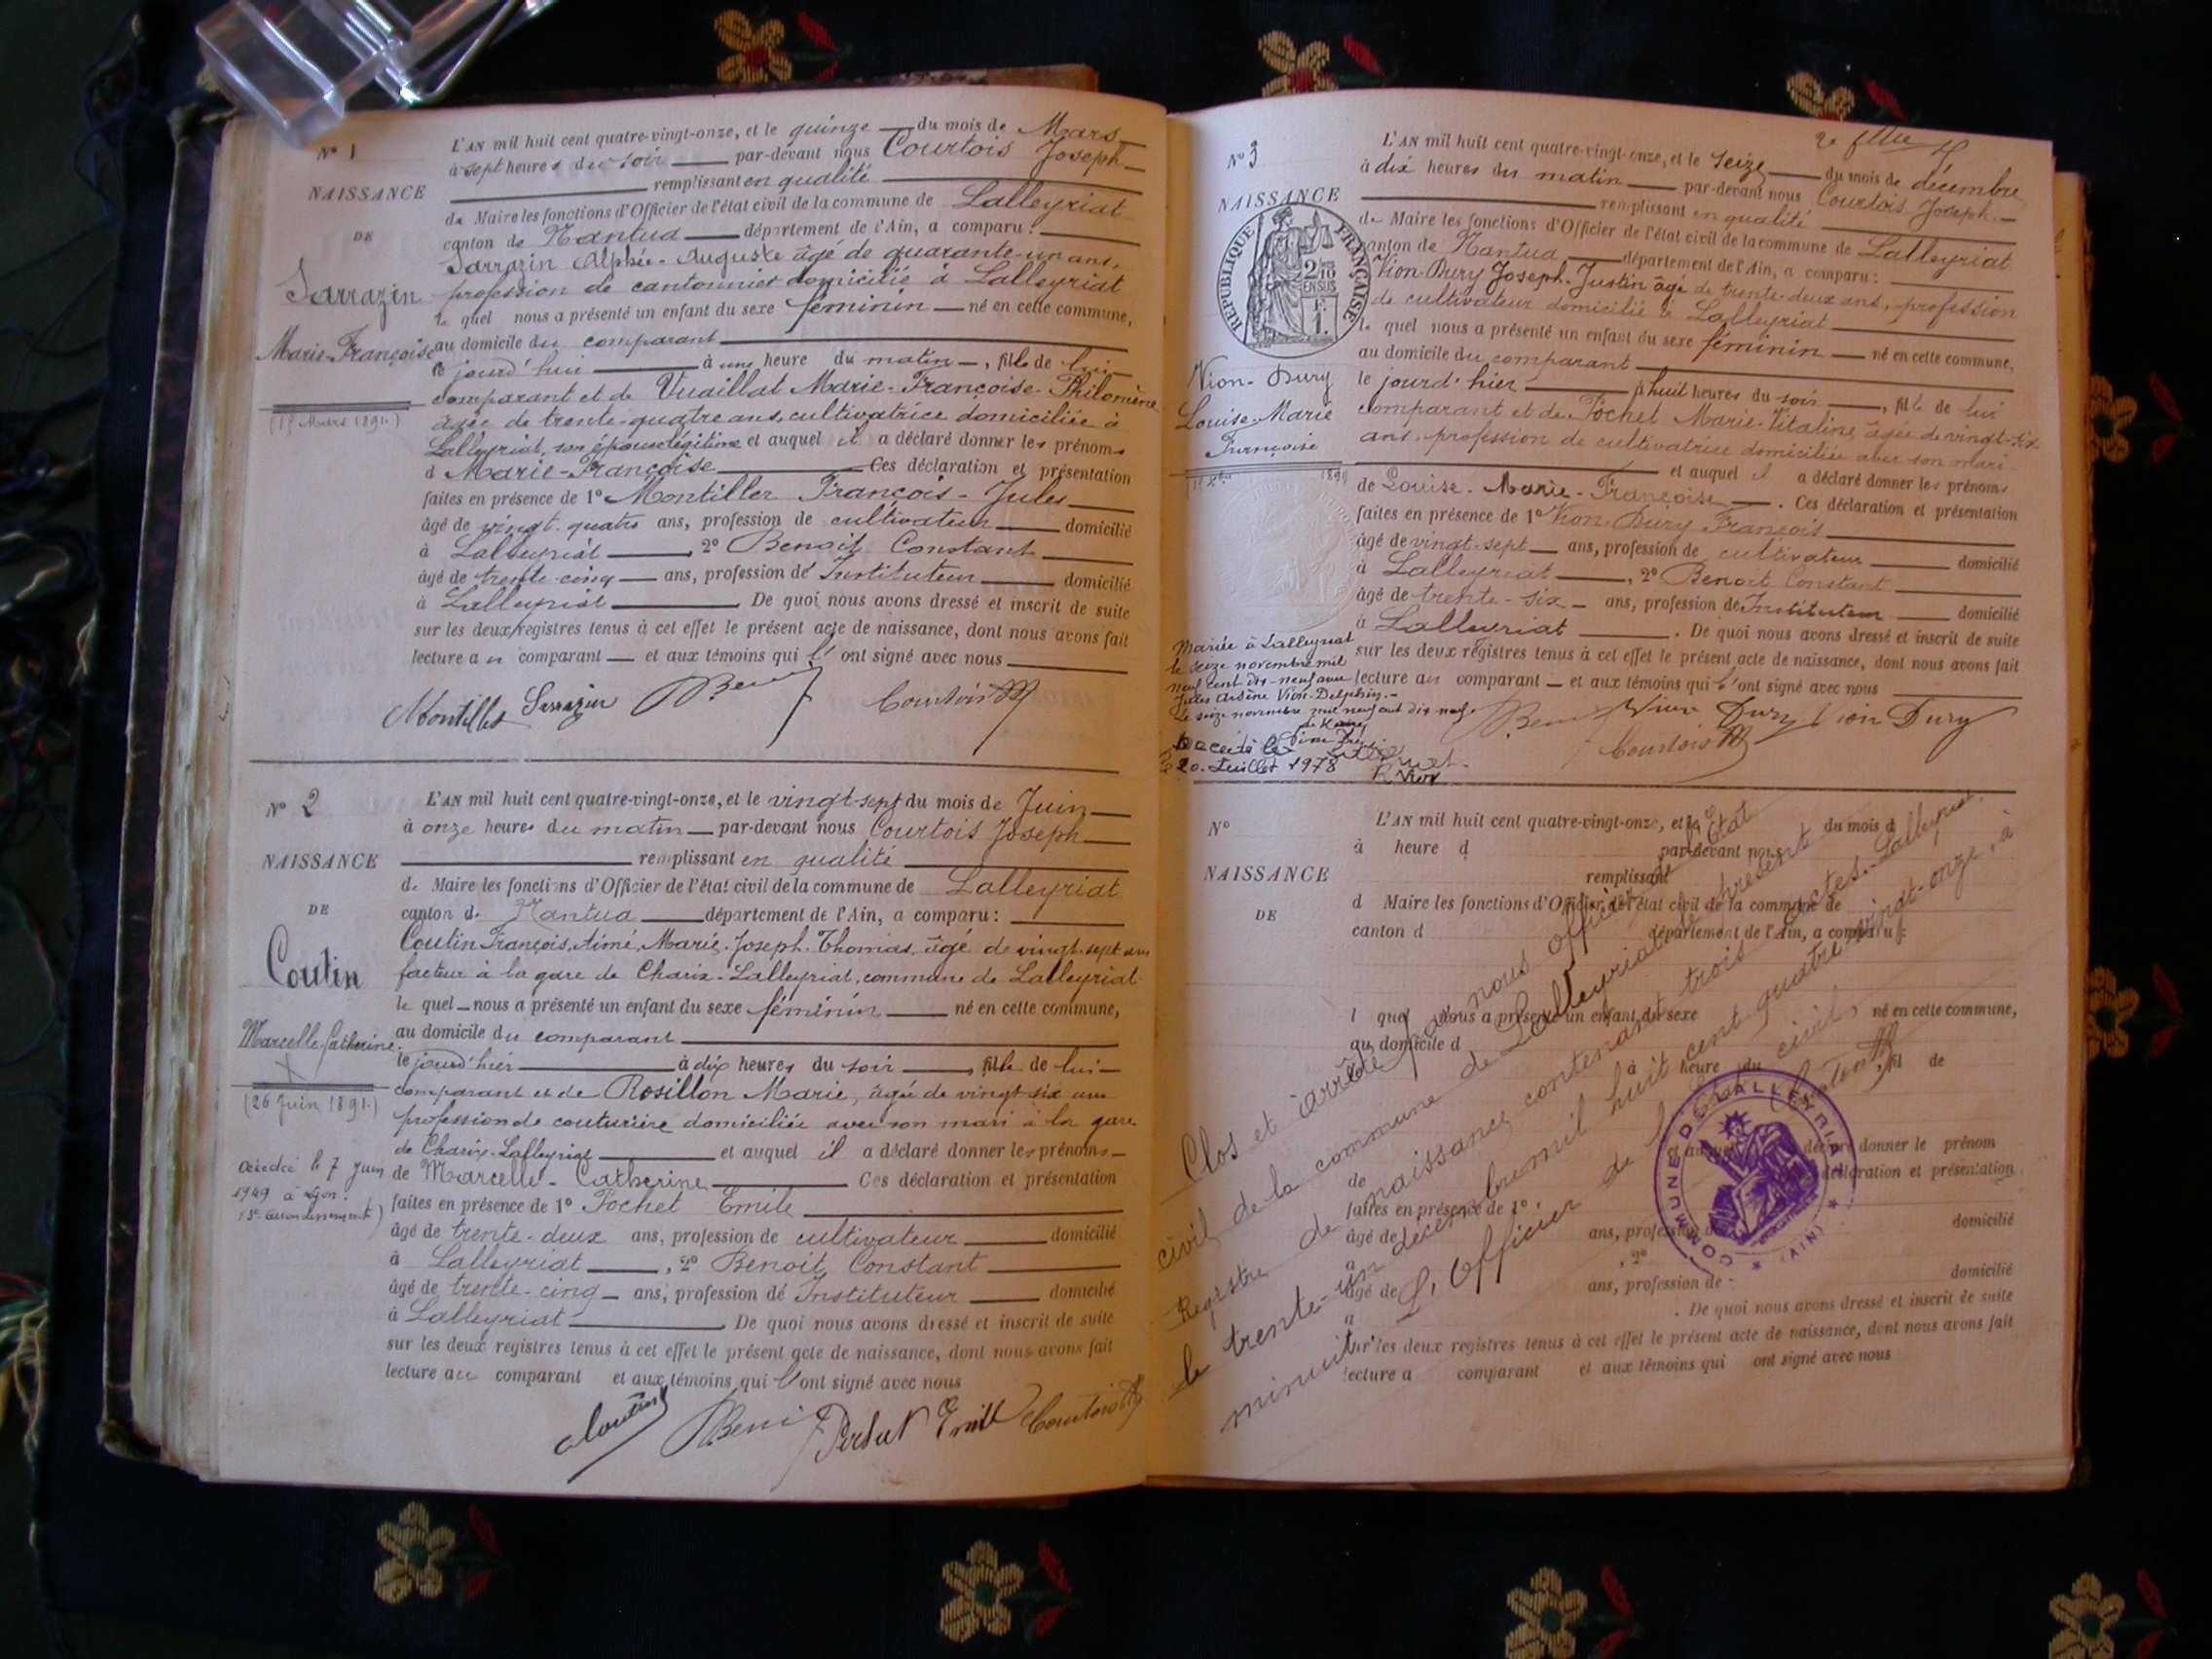 Nº 1
NAISSANCE
DE
Sarrazin
Marie-Françoise
(15 Mars 1891.)
L'AN mil huit cent quatre-vingt-onze, et le quinze du mois de Mars
à sept heures du soir par-devant nous Courtois Joseph
remplissant en qualité
de Maire les fonctions d'Officier de l'état civil de la commune de Lalleyriat
canton de Nantua département de l'Ain, a comparu :
Sarrazin Alphée-Auguste âgé de quarante-un ans,
profession de cantonnier domicilié à Lalleyriat
le quel nous a présenté un enfant du sexe féminin né en cette commune,
au domicile du comparant
le jourd'hui à une heure du matin, fille de lui
comparant et de Vuaillat Marie-Françoise-Philomène
âgée de trente-quatre ans, cultivatrice domiciliée à
Lalleyriat, son épouse légitime et auquel il a déclaré donner les prénoms
d Marie-Françoise Ces déclaration et présentation
faites en présence de 1º Montiller François-Jules
âgé de vingt-quatre ans, profession de cultivateur domicilié
à Lalleyriat, 2º Benoit Constant
âgé de trente-cinq ans, profession de Instituteur domicilié
à Lalleyriat De quoi nous avons dressé et inscrit de suite
sur les deux registres tenus à cet effet le présent acte de naissance, dont nous avons fait
lecture au comparant et aux témoins qui l'ont signé avec nous
Montiller Sarrazin Courtois
Nº 2
NAISSANCE
DE
Coutin
Marcelle Catherine
(26 Juin 1891.)
décédée le 7 juin
1949 à Lyon.
L'AN mil huit cent quatre-vingt-onze, et le vingt-sept du mois de Juin
à onze heures du matin par-devant nous Courtois Joseph
remplissant en qualité
de Maire les fonctions d'Officier de l'état civil de la commune de Lalleyriat
canton de Nantua département de l'Ain, a comparu :
Coutin François, Aimé, Marie, Joseph, Thomas, âgé de vingt-sept ans
facteur à la gare de Charix-Lalleyriat, commune de Lalleyriat
le quel nous a présenté un enfant du sexe féminin né en cette commune,
au domicile du comparant
le jourd'hier à dix heures du soir, fille de lui
comparant et de Rosillon Marie, âgée de vingt-six ans
profession de couturière domiciliée avec son mari à la gare
de Charix-Lalleyriat et auquel il a déclaré donner les prénoms
de Marcelle-Catherine Ces déclaration et présentation
faites en présence de 1º Pochet Emile
âgé de trente-deux ans, profession de cultivateur domicilié
à Lalleyriat, 2º Benoit Constant
âgé de trente-cinq ans, profession de Instituteur domicilié
à Lalleyriat De quoi nous avons dressé et inscrit de suite
sur les deux registres tenus à cet effet le présent acte de naissance, dont nous avons fait
lecture au comparant et aux témoins qui l'ont signé avec nous
Coutin Pochet Emile Courtois
Nº 3
NAISSANCE
RÉPUBLIQUE FRANÇAISE
2/10
EN SUS
1 F.
Vion-Dury
Louise-Marie
Françoise
Mariée à Lalleyriat
le seize novembre mil
neuf cent dix-neuf avec
Jules Arsène Vion-Delphin.
Le seize novembre mil neuf cent dix neuf.
Décédée
20 Juillet 1978
R Vion
2e flle
L'AN mil huit cent quatre-vingt-onze, et le seize du mois de décembre
à dix heures du matin par-devant nous Courtois Joseph
remplissant en qualité
de Maire les fonctions d'Officier de l'état civil de la commune de Lalleyriat
canton de Nantua département de l'Ain, a comparu :
Vion-Dury Joseph-Justin âgé de trente-deux ans, profession
de cultivateur domicilié à Lalleyriat
le quel nous a présenté un enfant du sexe féminin né en cette commune,
au domicile du comparant
le jourd'hier à huit heures du soir, fille de lui
comparant et de Pochet Marie-Vitaline âgée de vingt-six
ans, profession de cultivatrice domiciliée avec son mari
et auquel il a déclaré donner les prénoms
de Louise-Marie-Françoise. Ces déclaration et présentation
faites en présence de 1º Vion-Dury François
âgé de vingt-sept ans, profession de cultivateur domicilié
à Lalleyriat, 2º Benoit Constant
âgé de trente-six ans, profession de Instituteur domicilié
à Lalleyriat. De quoi nous avons dressé et inscrit de suite
sur les deux registres tenus à cet effet le présent acte de naissance, dont nous avons fait
lecture au comparant et aux témoins qui l'ont signé avec nous
Vion Dury Vion Dury
Courtois
Nº
NAISSANCE
DE
L'AN mil huit cent quatre-vingt-onze, et le du mois d
à heure d par-devant nous
remplissant
d Maire les fonctions d'Officier de l'état civil de la commune de
canton d département de l'Ain, a comparu :
l quel nous a présenté un enfant du sexe né en cette commune,
au domicile d
à heure du , fil de
et auquel déclaré donner le prénom
de déclaration et présentation
faites en présence de 1º
âgé de ans, profession de domicilié
à , 2º
âgé de ans, profession de domicilié
à . De quoi nous avons dressé et inscrit de suite
sur les deux registres tenus à cet effet le présent acte de naissance, dont nous avons fait
lecture a comparant et aux témoins qui ont signé avec nous
Clos et arrêté par nous officier de l'Etat
civil de la commune de Lalleyriat le présent
Registre de naissance contenant trois actes. Lalleyriat
le trente-un décembre mil huit cent quatre vingt-onze, à
minuit.
L'Officier de l'Etat civil,
Courtois
COMMUNE DE LALLEYRIAT
(AIN)